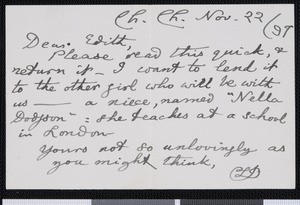 Ch. Ch. Nov. 22/97
Dear Edith,
Please read this quick, &
return it — I want to lend it
to the other girl who will be with
us — a niece, named "Nella
Dodgson": she teaches at a school
in London
Yours not so unlovingly as
you might think,
CLD